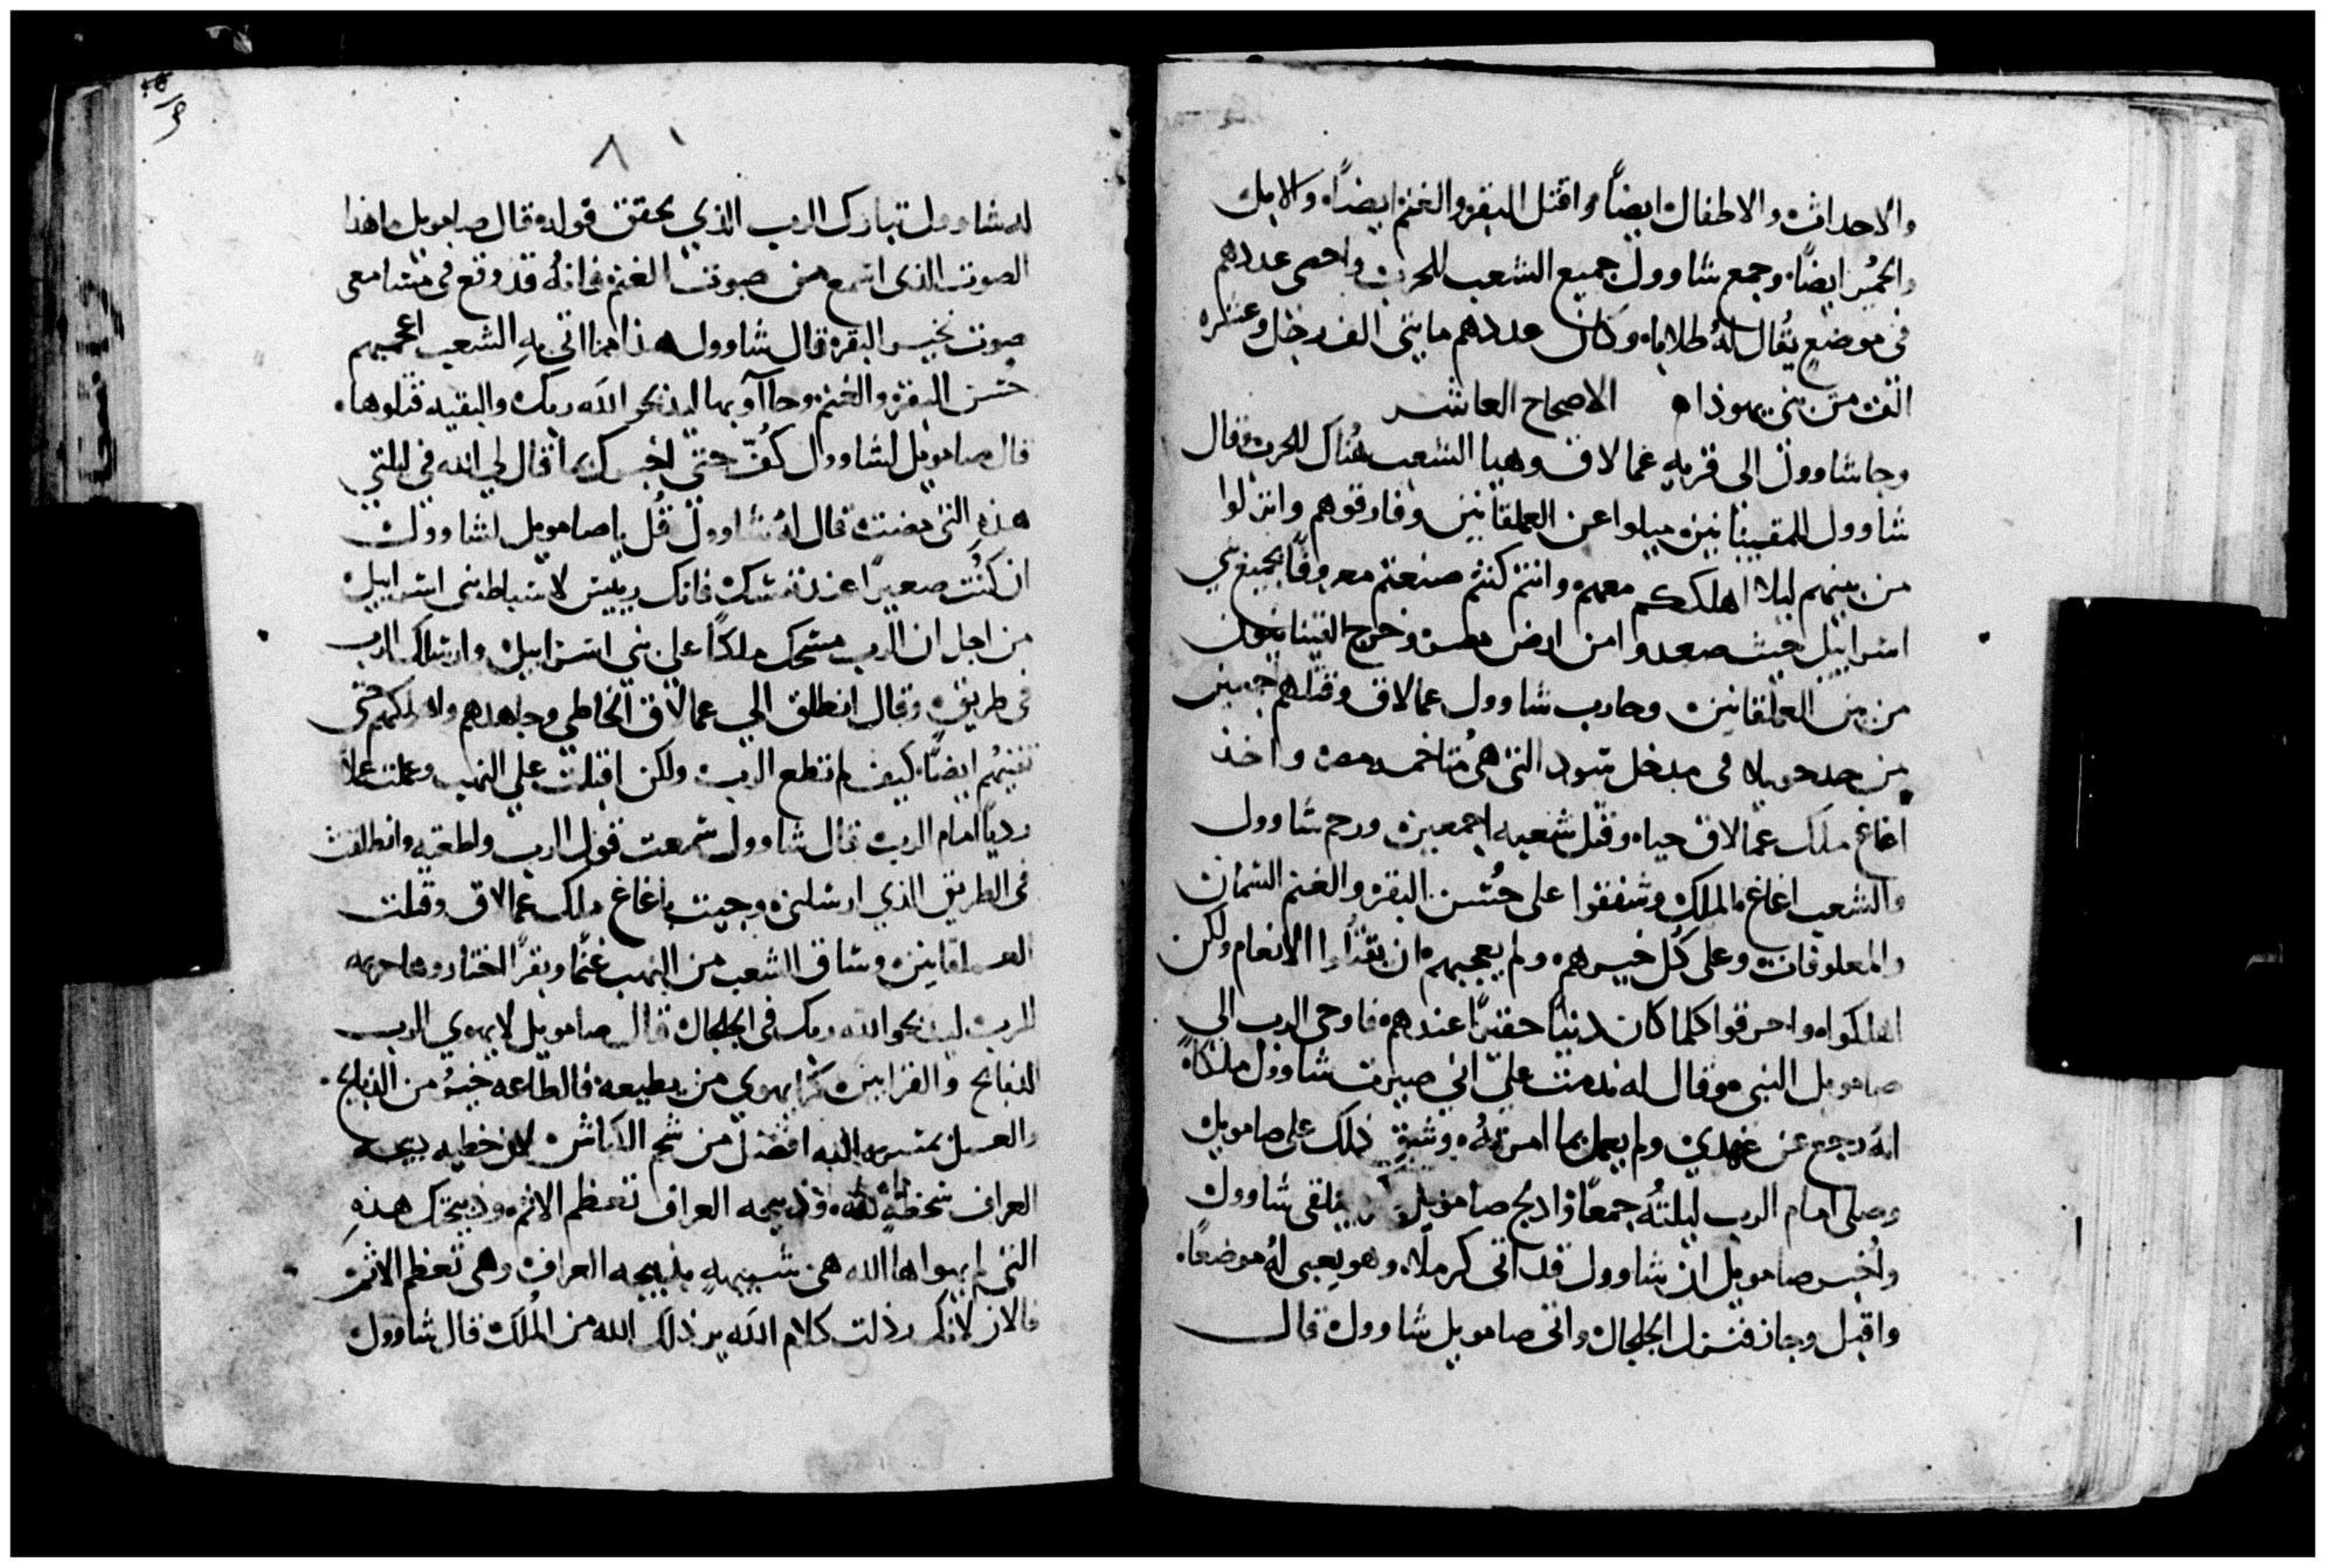 والاحداث والاطفال ايضاً واقتل البقر والغنم ايضاً والابل
والحمير ايضاً وجمع شاوول جميع الشعب للحرب واحصى عددهم
في موضع يُقال لهُ طلاباه وكان عددهم مايتى الف رجل وعشره
الف من بني يهوذا الاصحاح العاشر
وجا شاوول الى قريه عمالاق وهيا الشعب هُناك للحرب وقال
شاوول للقينانيين ميلوا عن العملقانيين وفارقوهم وانزلوا
من بينهم ليلا اهلككم معهم وانتم كنتم صنعتم معروفاً بجميع بني
اسراييل حيث صعدوا من ارض مصر وخرج القينانيون
من بين العملقانيين وحارب شاوول عمالاق وقتلهم اجمعين
من حد حويلا في مدخل سود التي هي مُتاخمه مصر واخذ
اغاغ ملك عمالاق حياه وقتل شعبه اجمعين ورحم شاوول
والشعب اغاغ الملك وشفقوا على حُسن البقر والغنم السمان
والمعلوفات وعلى كُل خيرهم ولم يعجبهم ان يقتُلوا الانعام ولكن
اهلكوا واحرقوا كلما كان دنياً حقيراً عندهم فاوحى الرب الي
صامويل النبي وقال له ندمت علىّ اني صيرت شاوول ملكاً
انهُ رجع عن عهدي ولم يعمل بما امرتهُ وشق ذلك على صامويل
وصلى امام الرب ليلتُه جمعاً وادلج صامويل يلقى شاوول
وأُخبر صامويل ان شاوول قد اتى كرملا وهو يعبى لهُ موضعاً
واقبل وجاز فنزل الجلجال واتى صامويل شاوول قال
٨
له شاوول تبارك الرب الذي يحقق قوله قال صامويل ما هذا
الصوت الذي اسمع من صوت الغنم فانهُ قد وقع في مسامعى
صوت نحير البقر قال شاوول هذا مما اتى بهِ الشعب اعجبهم
حُسن البقر والغنم وجاآو بها ليذبحو الله ربك والبقيه قتلوها
قال صامويل لشاوول كُفّ حتى اخبرك بما قال لي الله في ليلتي
هذهِ التي مضت قال لهُ شاوول قُل يا صامويل لشاوول
ان كُنت صغيراً عند نفسك فانك رييس لاسباط بني اسراييل
من اجل ان الرب مسحك ملكاً على بني اسراييل وارسلك الرب
في طريق وقال انطلق الي عمالاق الخاطي وجاهدهم واهلكهم حتى
تفنيهُم ايضاً كيف لم تطع الرب ولكن اقبلت على النهب وعملت عملاً
ردياً امام الرب قال شاوول سمعت قول الرب واطعته وانطلقت
في الطريق الذي ارسلني وجيت باغاغ ملك عمالاق وقتلت
العملقانيين وساق الشعب من النهب غنماً وبقراً اختاروها حرمه
للرب ليذبحوا لله ربك في الجلجال قال صامويل لا يهوي الرب
الذبايح والقرابين كما يهوي من يطيعه فالطاعه خيرُ من الذبايح
والعمل بمسره الله افضل من شحم الكباش لان خطيه ذبيحه
العراف سخطه لله وذبيحه العراف تعظم الاثم وذبيحتك هذهِ
التي لم يهواها الله هي شبيهه بذبيحه العراف وهي تعظم الاثم
فالان لانك رذلت كلام الله يرذلك الله من المُلك قال شاوول